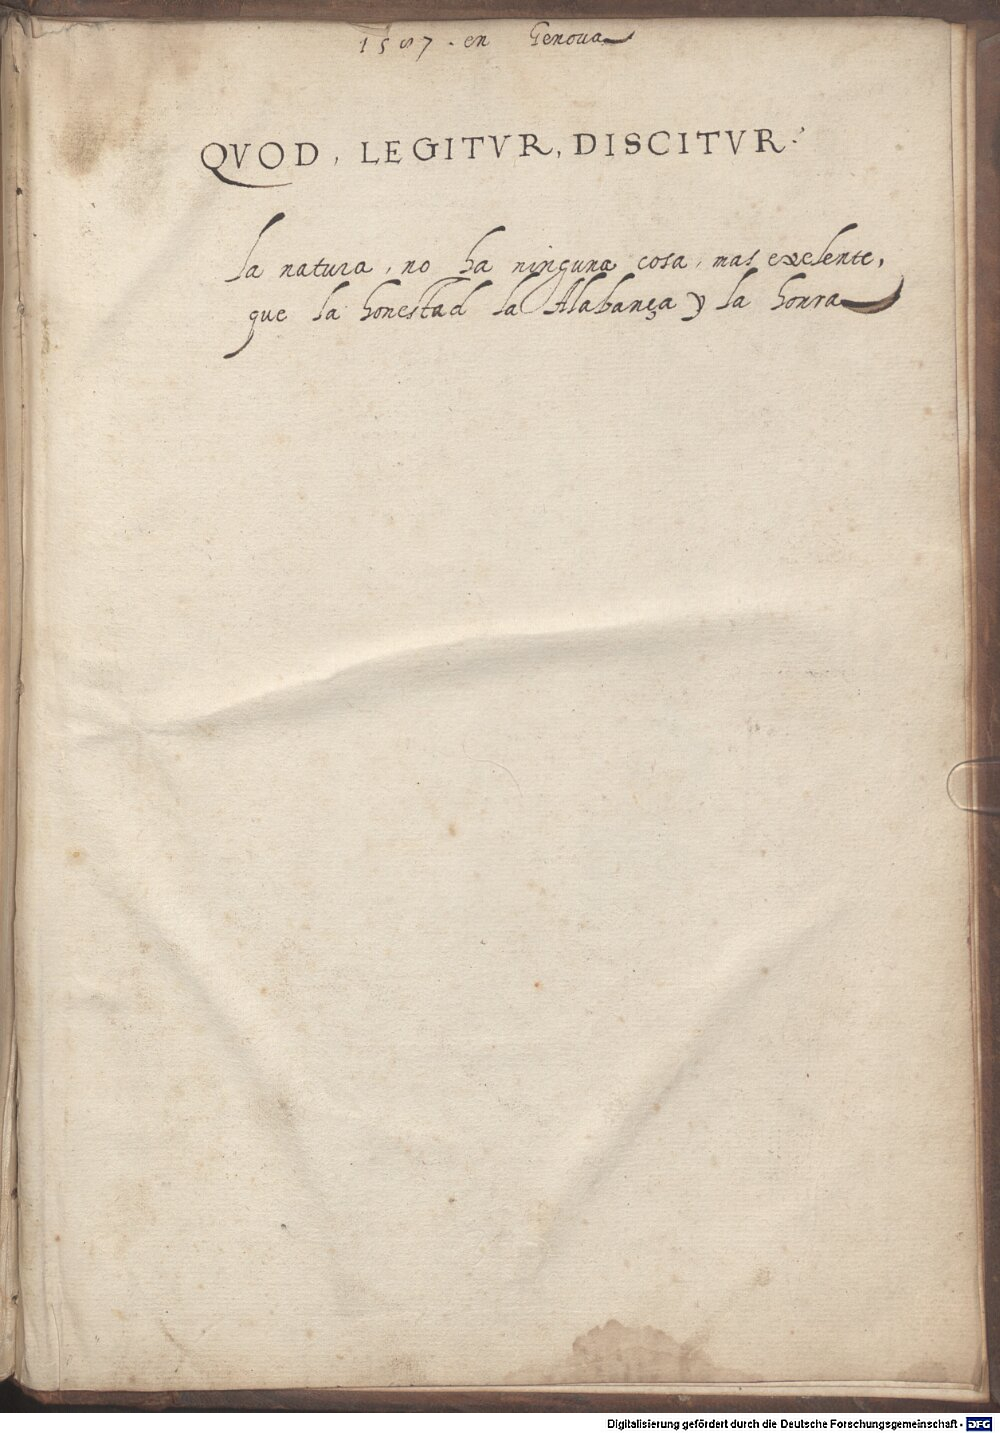 1587 . en Genoua
QVOD, LEGITVR, DISCITVR.
la natura, no ha ninguna cosa, mas exelente,
que la honestad la Alabança y la honra
Digitalisierung gefördert durch die Deutsche Forschungsgemeinschaft - DFG